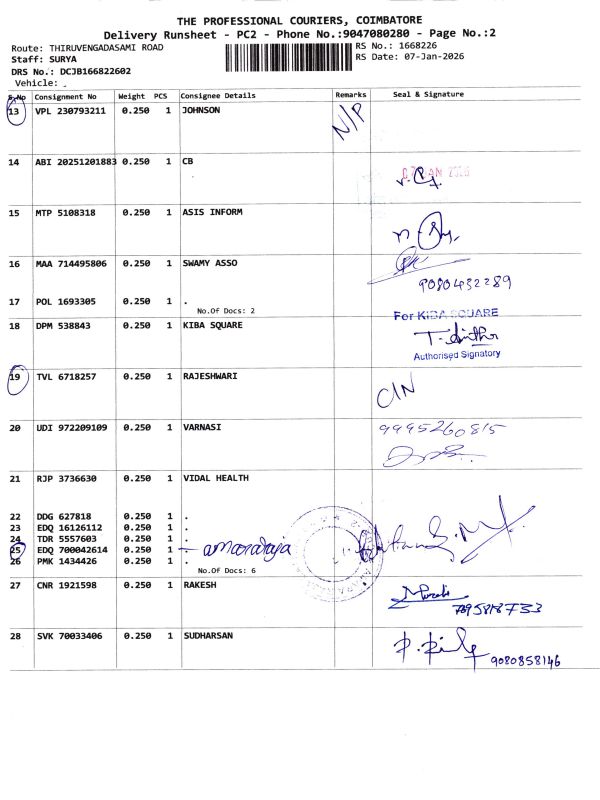 THE PROFESSIONAL COURIERS, COIMBATORE
Delivery Runsheet - PC2 - Phone No.:9047080280 - Page No.:2
Route: THIRUVENGADASAMI ROAD
RS No.: 1668226
Staff: SURYA
RS Date: 07-Jan-2026
DRS No.: DCJB166822602
Vehicle: .
S.No Consignment No Weight PCS Consignee Details Remarks Seal & Signature
13 VPL 230793211 0.250 1 JOHNSON N/P
14 ABI 20251201883 0.250 1 CB
15 MTP 5108318 0.250 1 ASIS INFORM
16 MAA 714495806 0.250 1 SWAMY ASSO
9080432289
17 POL 1693305 0.250 1 .
No.Of Docs: 2
For KIBA SQUARE
18 DPM 538843 0.250 1 KIBA SQUARE
Authorised Signatory
19 TVL 6718257 0.250 1 RAJESHWARI
C/N
20 UDI 972209109 0.250 1 VARNASI 9995260815
21 RJP 3736630 0.250 1 VIDAL HEALTH
22 DDG 627818 0.250 1 .
23 EDQ 16126112 0.250 1 .
24 TDR 5557603 0.250 1 .
25 EDQ 700042614 0.250 1 . amararaja
26 PMK 1434426 0.250 1 .
No.Of Docs: 6
27 CNR 1921598 0.250 1 RAKESH
28 SVK 70033406 0.250 1 SUDHARSAN
9080858146